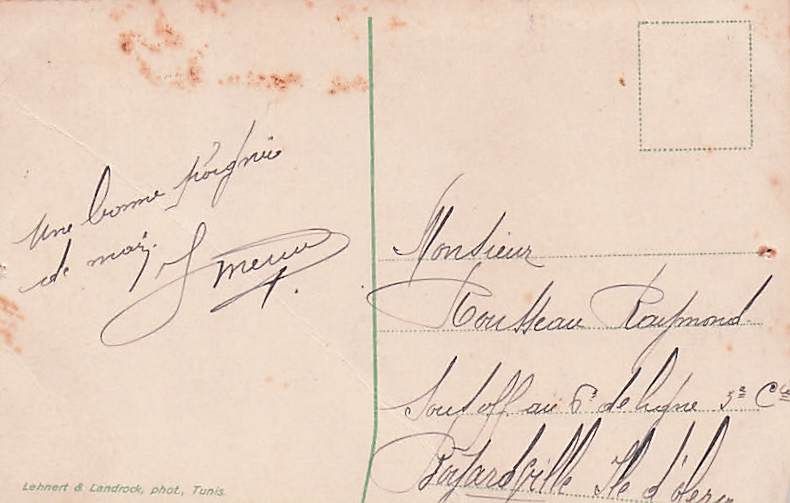 Une bonne poignée
de main.
Monsieur
Rousseau Raymond
Sous off au 6e de ligne 3e Cie
Boyardville Ile d'Oleron
Lehnert & Landrock, phot., Tunis.